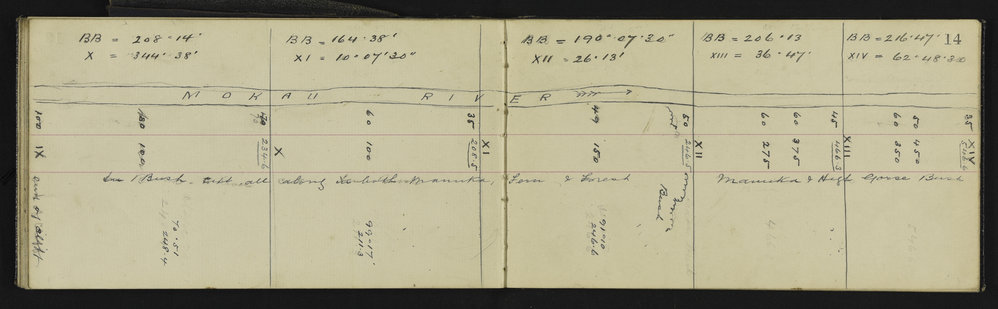 BB = 208·14'
X = 344·38'
BB = 164·38'
XI = 10°07'30"
BB = 190°·07'·30"
XII = 26·13'
BB = 206·13
XIII = 36·47'
BB = 216·47'
XIV = 62·48·30
14
MOKAU RIVER
100
180
70
60
35
49
50
60
60
45
60
50
35
IX
100
234·6
X
100
XI
150
246·5
XII
275
375
466·5
XIII
350
450
546·6
XIV
Bush all along Manuka, Fern & Forest
Manuka & High Gorse Bush
edge of cliff
Bush
70·51
248·4
99·17'
211·3
91·10
246·6